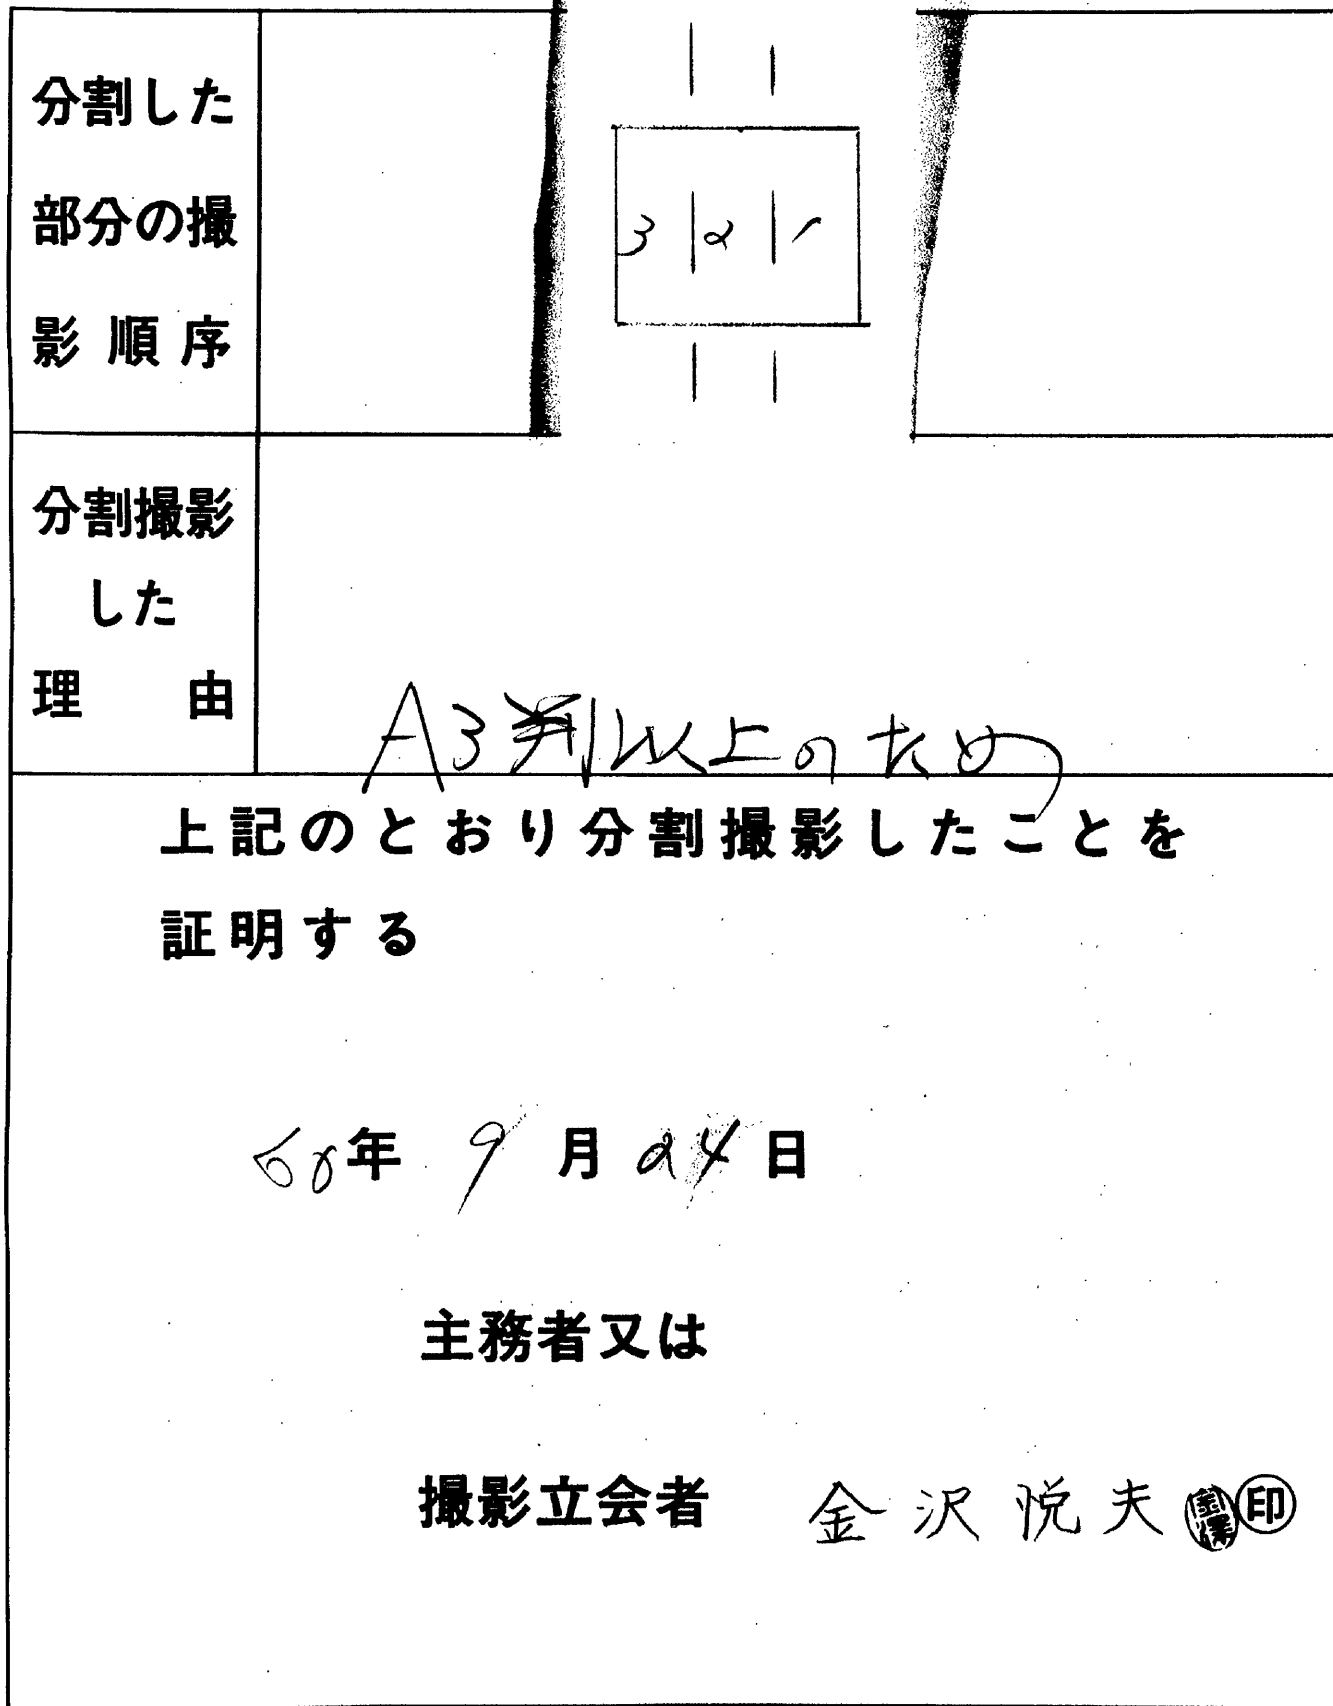 分割した
部分の撮
影順序
3 2 1
分割撮影
した
理由
A3判以上のため
上記のとおり分割撮影したことを
証明する
60年 9月 24日
主務者又は
撮影立会者 金沢悦夫 金澤 印